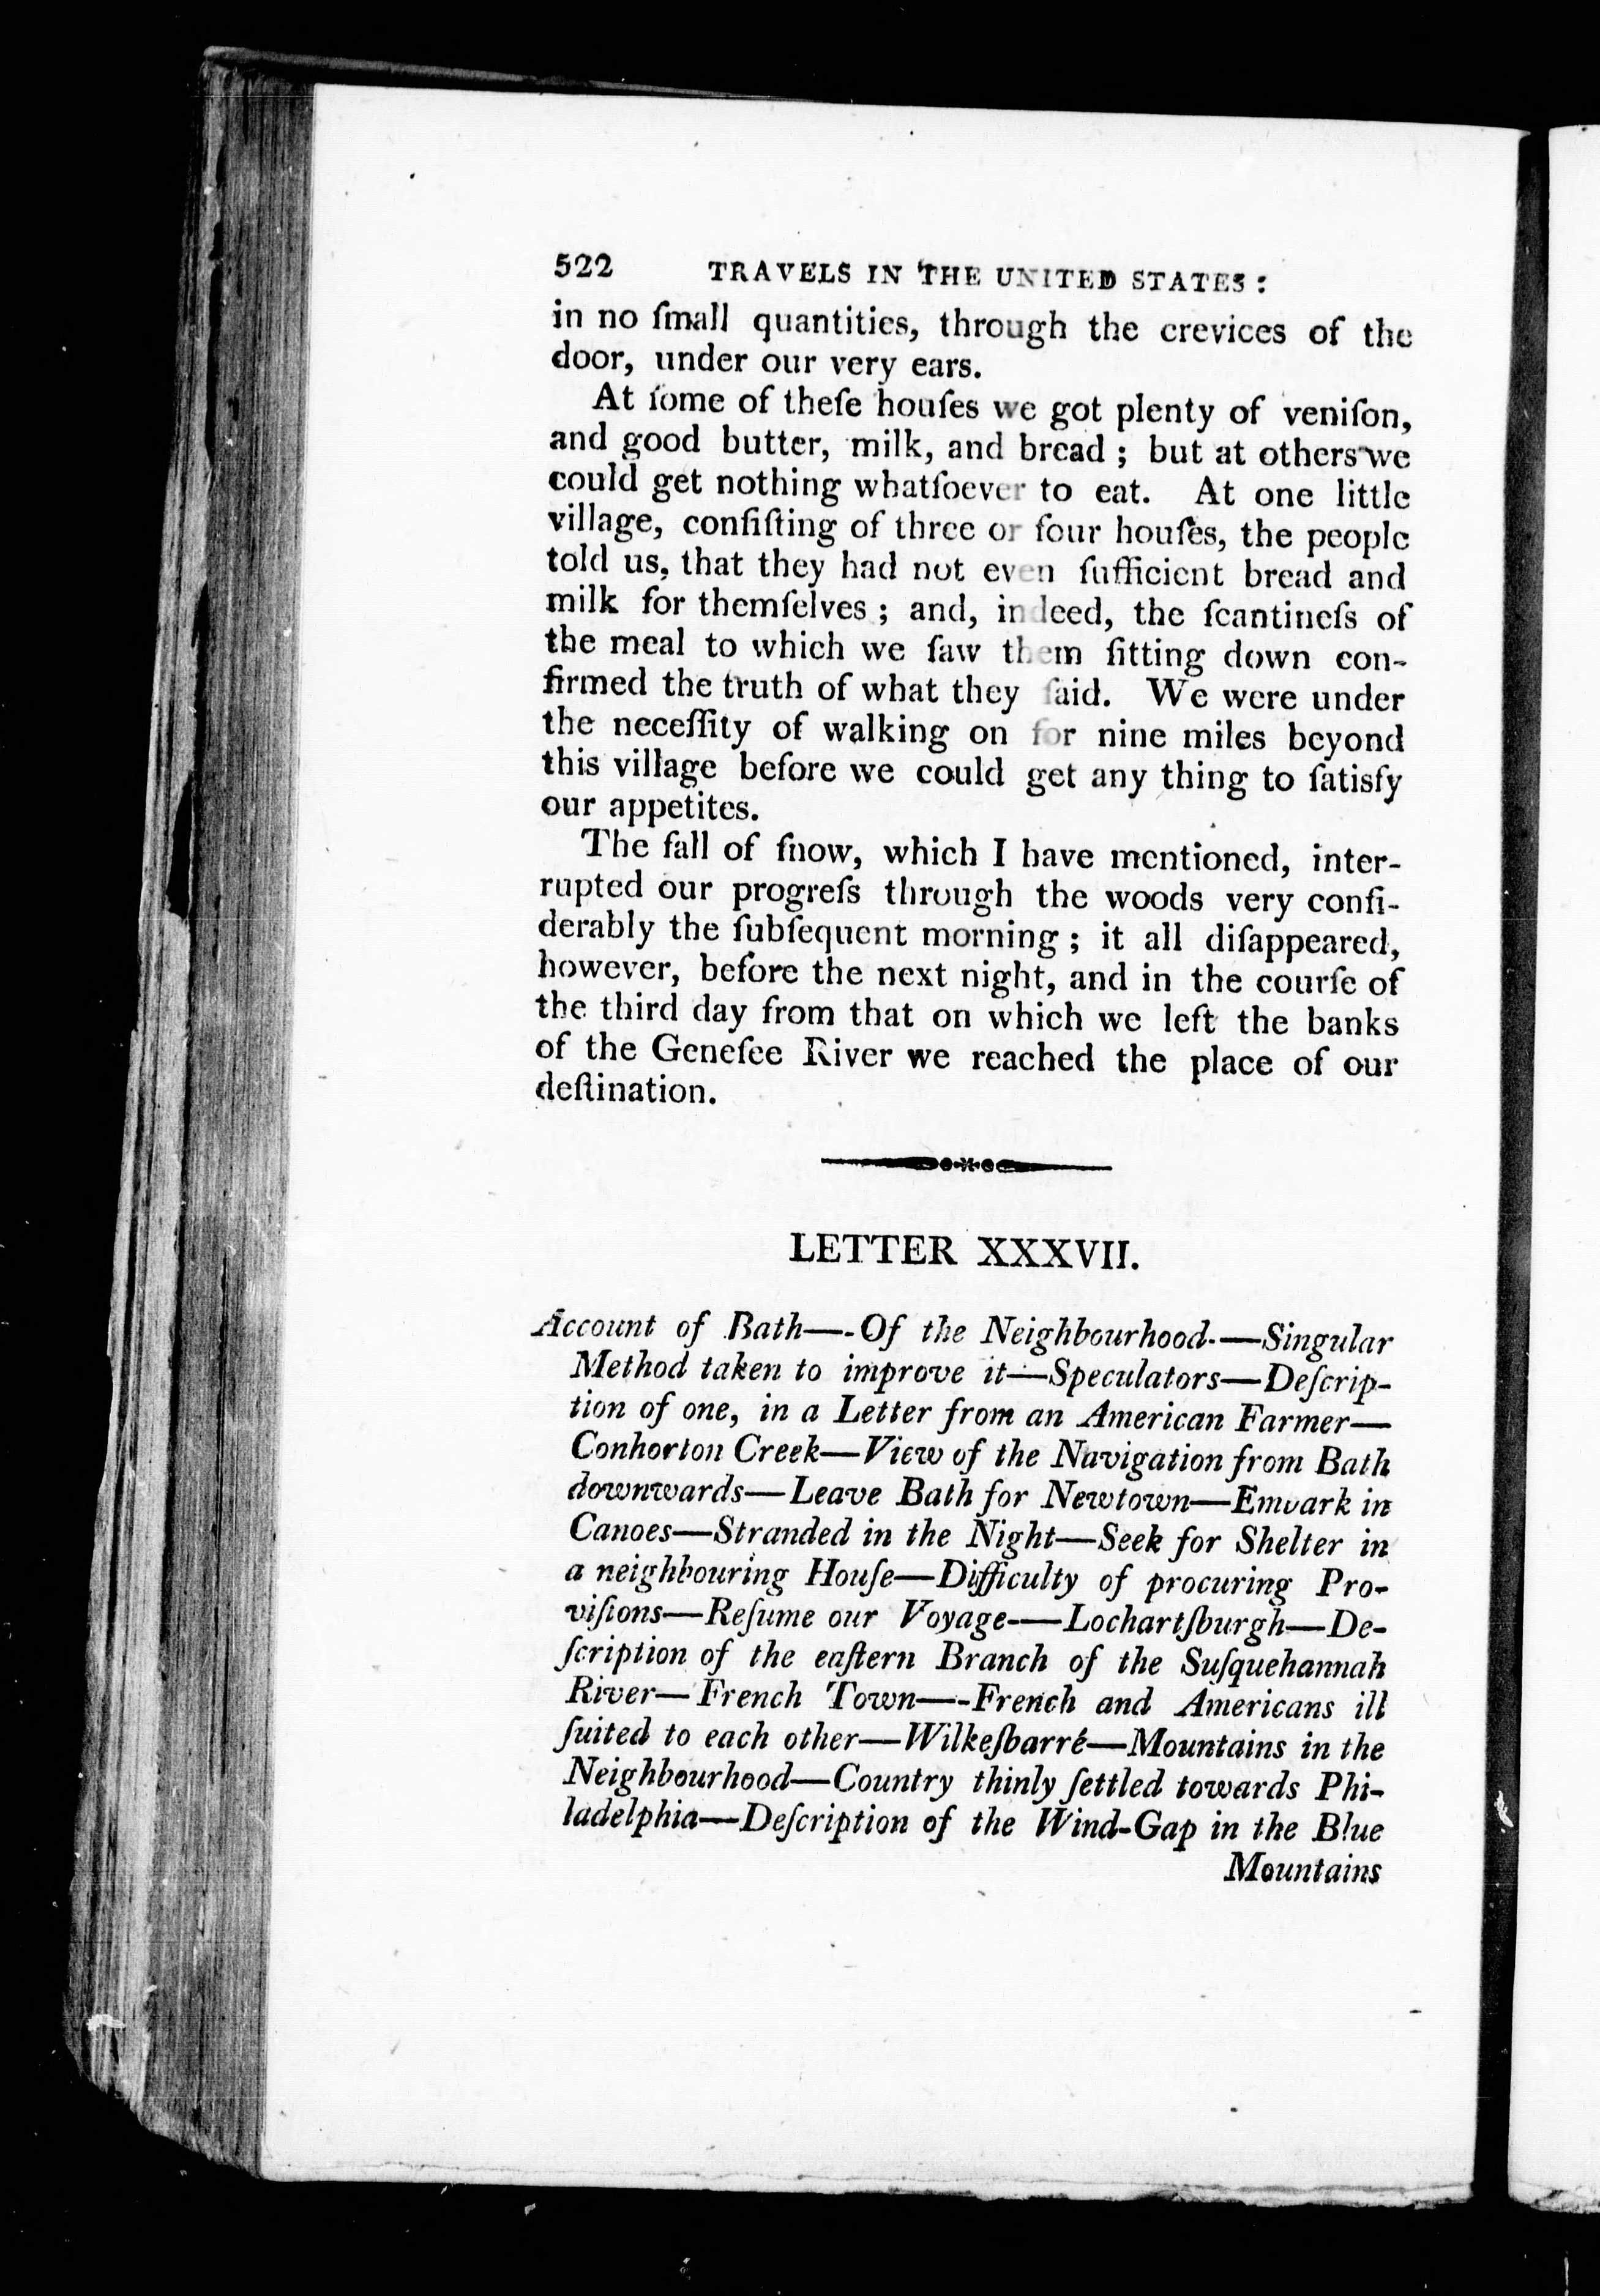 522 TRAVELS IN THE UNITED STATES :
in no ſmall quantities, through the crevices of the
door, under our very ears.
At ſome of theſe houſes we got plenty of veniſon,
and good butter, milk, and bread ; but at others we
could get nothing whatſoever to eat. At one little
village, conſiſting of three or four houſes, the people
told us, that they had not even ſufficient bread and
milk for themſelves ; and, indeed, the ſcantineſs of
the meal to which we ſaw them ſitting down con-
firmed the truth of what they ſaid. We were under
the neceſſity of walking on for nine miles beyond
this village before we could get any thing to ſatisfy
our appetites.
The fall of ſnow, which I have mentioned, inter-
rupted our progreſs through the woods very conſi-
derably the ſubſequent morning ; it all diſappeared,
however, before the next night, and in the courſe of
the third day from that on which we left the banks
of the Geneſee River we reached the place of our
deſtination.
LETTER XXXVII.
Account of Bath—-Of the Neighbourhood-—Singular
Method taken to improve it—Speculators—Deſcrip-
tion of one, in a Letter from an American Farmer—
Conhorton Creek—View of the Navigation from Bath
downwards—Leave Bath for Newtown—Embark in
Canoes—Stranded in the Night—Seek for Shelter in
a neighbouring Houſe—Difficulty of procuring Pro-
viſions—Reſume our Voyage-—Lochartſburgh—De-
ſcription of the eaſtern Branch of the Suſquehannah
River—French Town—-French and Americans ill
ſuited to each other—Wilkeſbarré—Mountains in the
Neighbourhood—Country thinly ſettled towards Phi-
ladelphia—Deſcription of the Wind-Gap in the Blue
Mountains